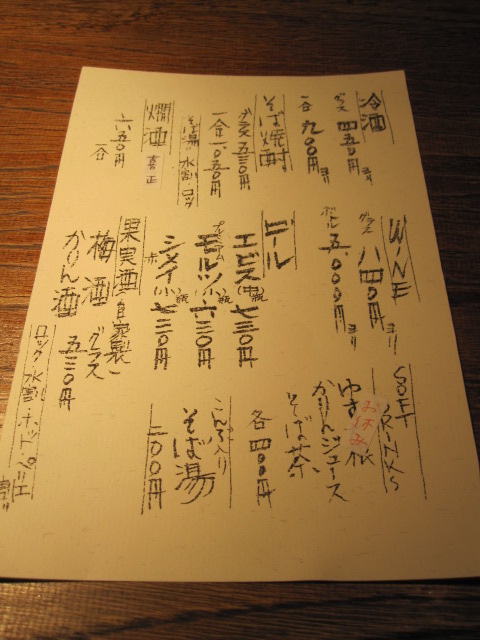 冷酒
グラス 四五〇円より
一合 九〇〇円より
そば焼酎
グラス 五三〇円
一合 一〇五〇円
そば湯・水割・ロック
燗酒
喜正
六五〇円
一合
WINE
グラス 八四〇円より
ボトル 五、〇〇〇円より
ビール
エビス(中瓶) 七三〇円
モルツ(小瓶) 六三〇円
シメイ(小瓶) 七三〇円
果実酒(自家製)
梅酒 グラス
かりん酒 五三〇円
ロック・水割・ホット・ソーダ
SOFT DRINKS
ゆず
お休み
かりんジュース
そばの茶
各 四〇〇円
こんぶ入り
そば湯
二〇〇円